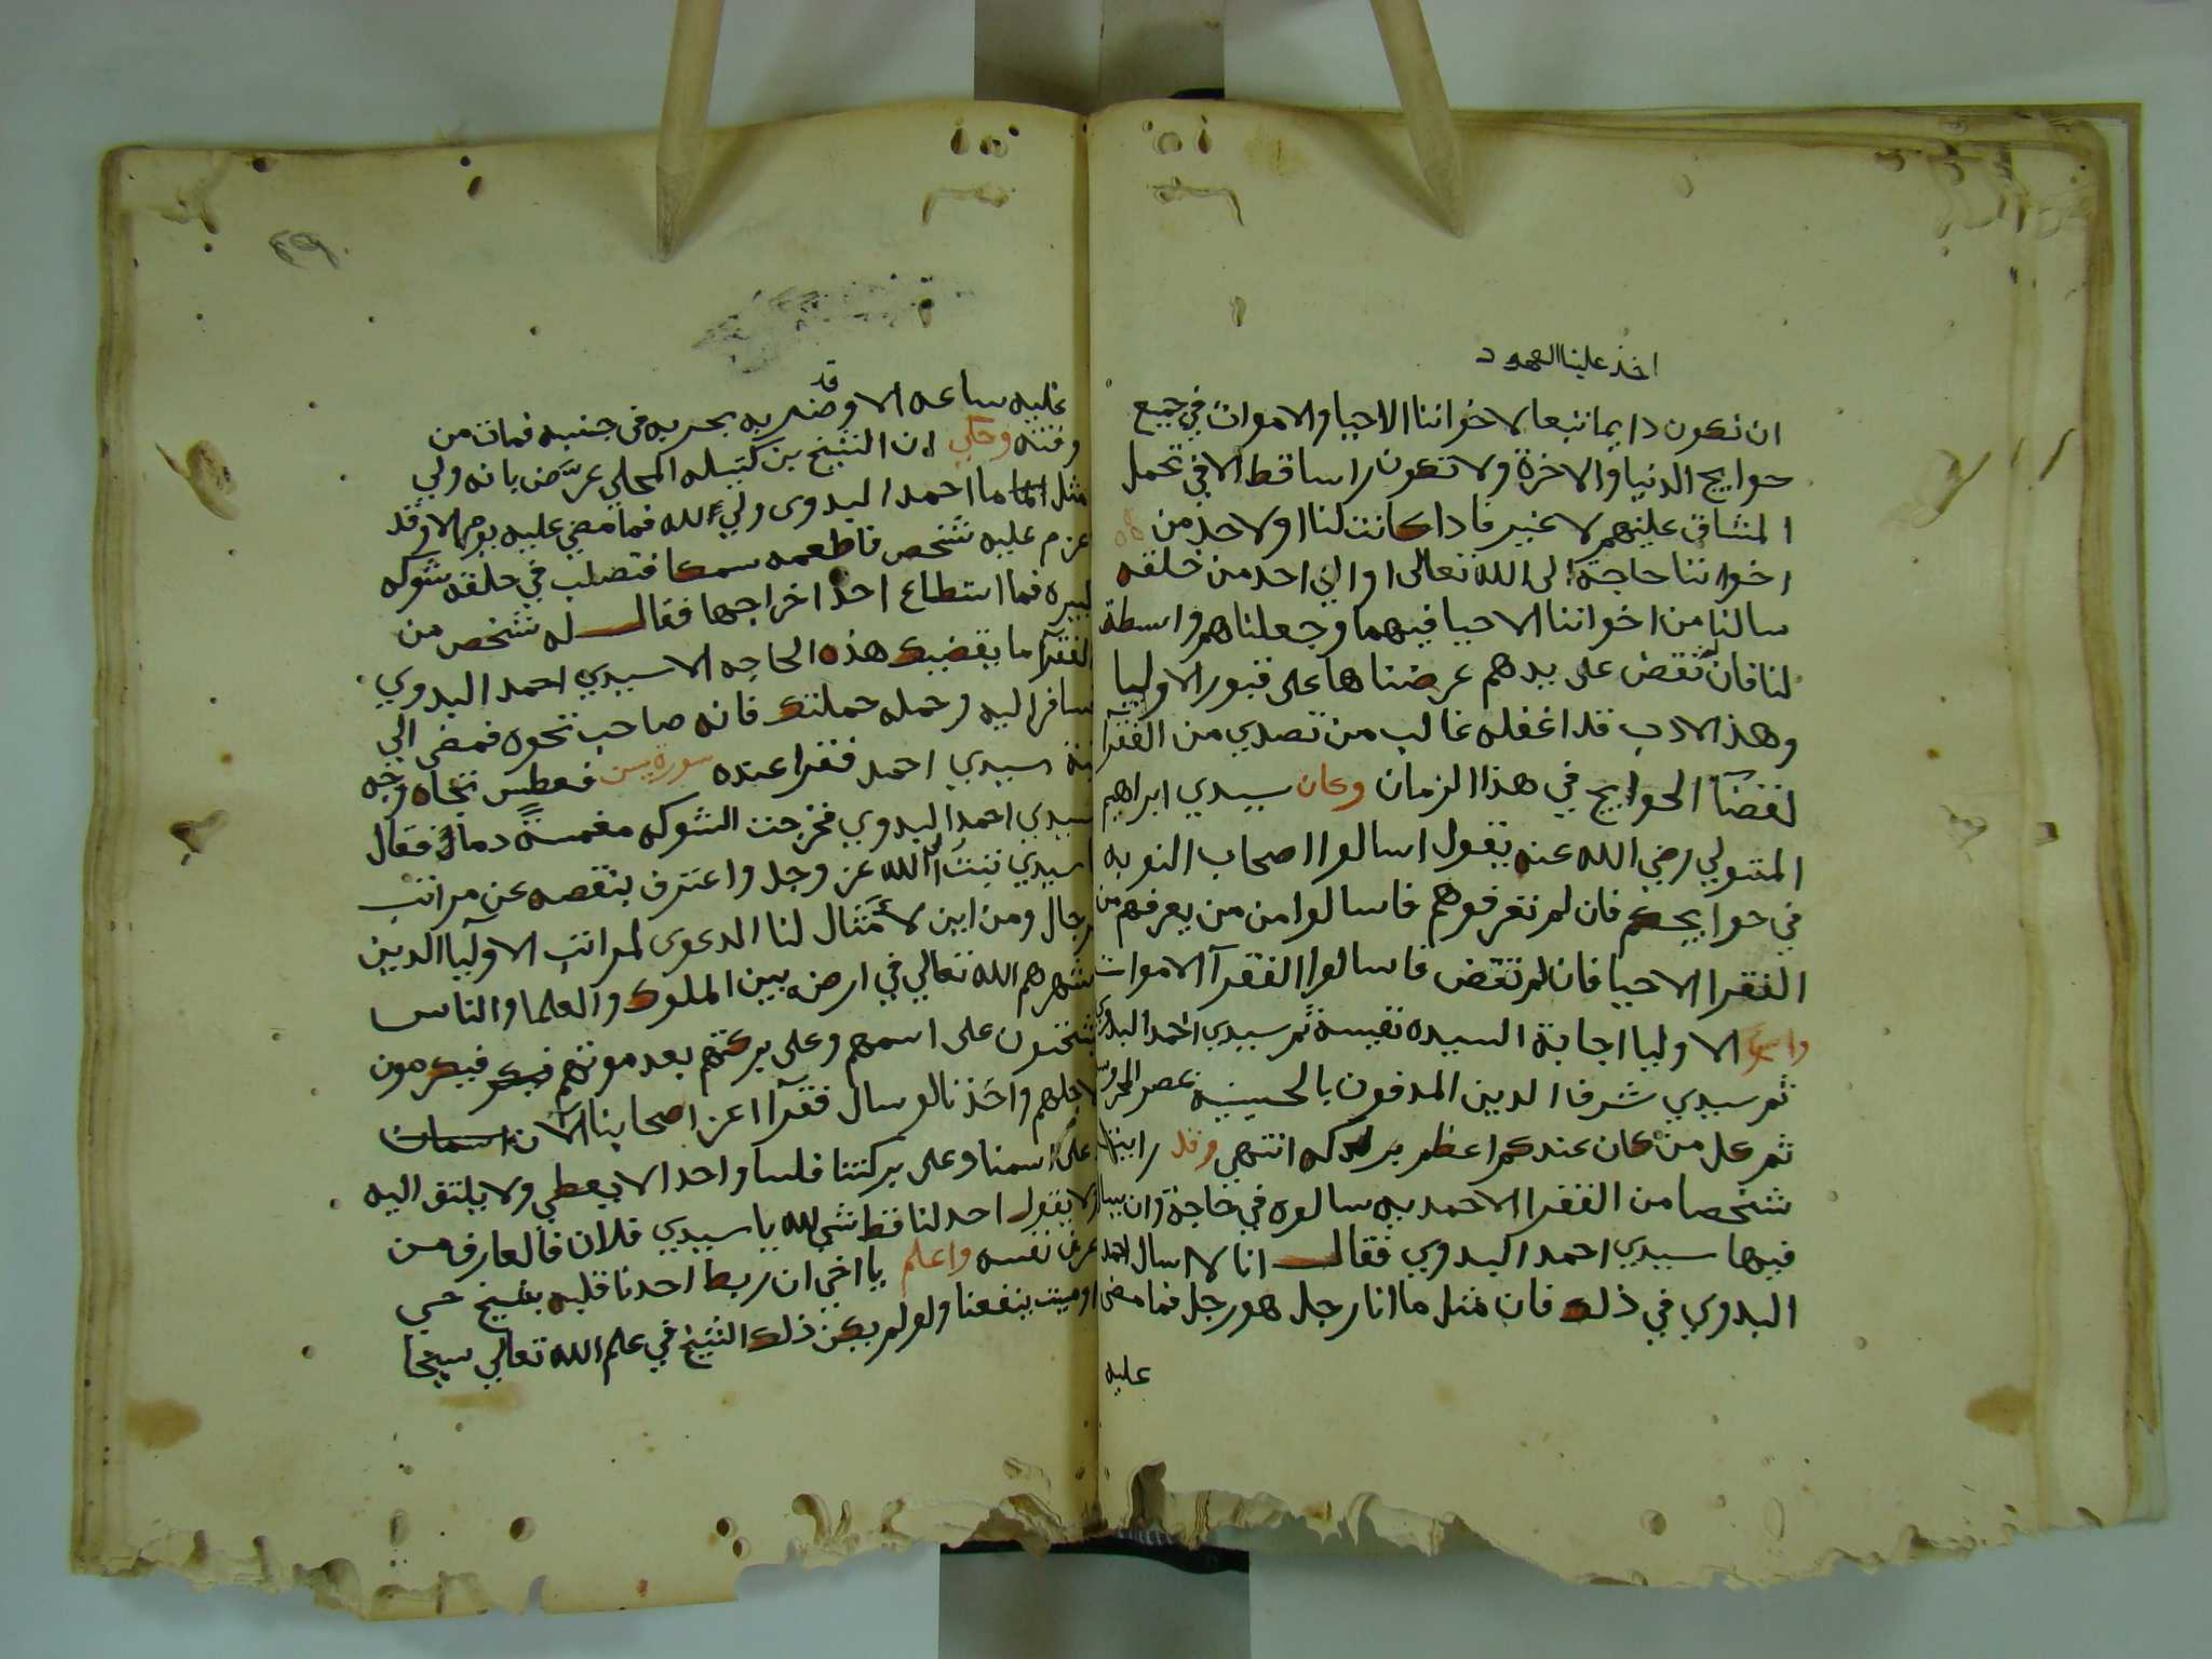 اخذ علينا العهود
ان نكون دايما تبعا لاخواننا الاحيا والاموات في جميع
حوايج الدنيا والاخرة ولا نكون راسا قط الا في تحمل
المشاق عليهم لا غير فاذا كانت لنا او لاحد من
اخواننا حاجة الى الله تعالى او الي احد من خلقه
سالنا من اخواننا الاحيا فيها وجعلناهم واسطة
لنا فان تقض على يدهم عرضناها على قبور الاوليا
وهذ الادب قد اغفله غالب من تصدي من الفقرآ
لقضآ الحوايج في هذا الزمان وكان سيدي ابراهيم
المتبولي رضي الله عنه يقول اسالوا اصحاب النوبه
في حوايجكم فان لم تعرفوهم فاسالوا من من يعرفهم من
الفقرا الاحيا فان لم تقض فاسالوا الفقرآ الاموات
واسرع الاوليا اجابة السيده نفيسة ثم سيدي احمد البدوي
ثم سيدي شرف الدين المدفون بالحسينيه بمصر المحروسه
ثم كل من كان عندكم اعظم بركه انتهي وقد رايت
شخصا من الفقرا الاحمديه سالوه في حاجة وان يسال
فيها سيدي احمد البدوي فقال انا لا اسال احمد
البدوي في ذلك فان مثل ما انا رجل هو رجل فما مضى
عليه
٤٩
عليه ساعه الا وقد ضربه بحربه في جنبه فمات من
وقته وحكي ان الشيخ بن كتيله المحلي عرَّض بانه ولي
مثل ما احمد البدوى ولي الله فما مضى عليه يوم الا وقد
عزم عليه شخص فاطعمه سمكا فتصلب في حلقه شوكه
كبيره فما استطاع احد اخراجها فقال له شخص من
الفقرآ ما يقضيك هذه الحاجه الا سيدي احمد البدوي
سافر اليه وحمله حملتك فانه صاحب نخوه فمضي الي
قبة سيدي احمد فقرا عنده سورة يس فعطس تجاه وجه
سيدي احمد البدوي فخرجت الشوكه مغمسة دما فقال
يا سيدي تبت الي الله عز وجل واعترف بنقصه عن مراتب
الرجال ومن اين لامثال لنا الدعوى لمراتب الاوليا الدين
شهرهم الله تعالي في ارض بين الملوك والعلما والناس
يشحتون على اسمهم وعلى بركتهم بعد موتهم فيكرمون
لاجلهم واحَدنا لو سال فقرآ اعز اصحابنا الان
على اسمنا وعلى بركتنا فلسا واحدا لا يعطي ولا يلتق اليه
ولا يقول احد لنا قط شي لله يا سيدي فلان فالعارف من
عرف نفسه واعلم يا اخي ان ربط احدنا قلبه بشيخ حي
او ميت ينفعنا ولو لم يكن ذلك الشيخ في علم الله تعالي شيخا